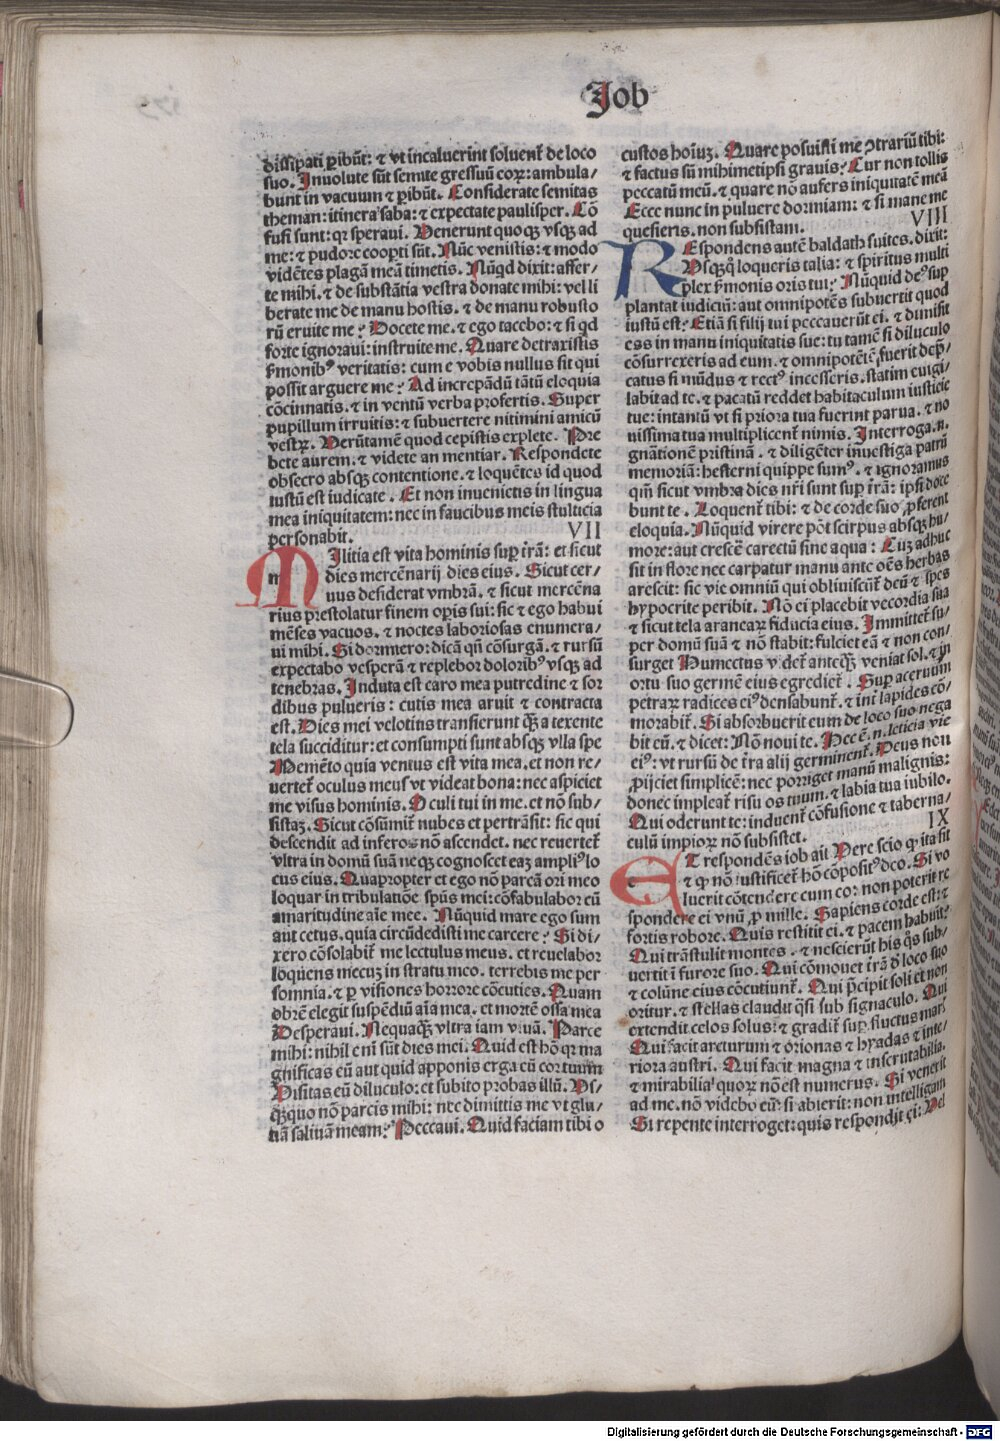 Job
dissipati ꝑibũt: ⁊ vt incaluerint soluent̃ de loco
suo. Inuolute sũt semite gressuũ coꝝ: ambula/
bunt in vacuum ⁊ ꝑibũt. Considerate semitas
theman: itinera saba: ⁊ expectate paulisper. Cõ
fusi sunt: qꝛ speraui. Venerunt quoqꝫ vsqꝫ ad
me: ⁊ pudore coopti sũt. Nũc venistis: ⁊ modo
vidẽtes plagã meã timetis. Nũqd dixit: affer/
te mihi. ⁊ de substãtia vestra donate mihi: vel li
berate me de manu hostis. ⁊ de manu robusto
rũ eruite me? Docete me. ⁊ ego tacebo: ⁊ si qd
forte ignoraui: instruite me. Quare detraxistis
ẜmonibꝰ veritatis: cum e vobis nullus sit qui
possit arguere me? Ad increpãdũ tãtũ eloquia
cõcinnatis. ⁊ in ventũ verba profertis. Super
pupillum irruitis: ⁊ subuertere nitimini amicũ
vestꝝ. Verũtamẽ quod cepistis explete. Pre
bete aurem. ⁊ videte an mentiar. Respondete
obsecro absqꝫ contentione. ⁊ loquẽtes id quod
iustũ est iudicate. Et non inuenietis in lingua
mea iniquitatem: nec in faucibus meis stulticia
personabit. VII
MIlitia est vita hominis suꝑ t̃rã: et sicut
dies mercẽnarij dies eius. Sicut cer/
uus desiderat vmbrã. ⁊ sicut mercẽna
rius prestolatur finem oꝑis sui: sic ⁊ ego habui
mẽses vacuos. ⁊ noctes laboriosas enumera/
ui mihi. Si dormiero: dicã qñ cõsurgã. ⁊ rursũ
expectabo vesperã ⁊ replebor doloribꝰ vsqꝫ ad
tenebras. Induta est caro mea putredine ⁊ sor
dibus pulueris: cutis mea aruit ⁊ contracta
est. Dies mei velotius transierunt qꝫ̃ a texente
tela succiditur: et consumpti sunt absqꝫ vlla spe
Memẽto quia ventus est vita mea. et non re/
uertet̃ oculus meus vt videat bona: nec aspiciet
me visus hominis. Oculi tui in me. et nõ sub/
sistaꝫ. Sicut cõsũmit̃ nubes et pertrãsit: sic qui
descendit ad inferos nõ ascendet. nec reuertet̃
vltra in domũ suã neqꝫ cognoscet eaꝫ ampliꝰ lo
cus eius. Quapropter et ego nõ parcã ori meo
loquar in tribulatiõe spũs mei: cõfabulabor cũ
amaritudine aĩe mee. Nũquid mare ego sum
aut cetus. quia circũdedisti me carcere? Si di/
xero cõsolabit̃ me lectulus meus. et reuelabor
loquens mecuꝫ in stratu meo. terrebis me per
somnia. ⁊ ꝑ visiones horrore cõcuties. Quam
obrẽ elegit suspẽdiũ aĩa mea. et mortẽ ossa mea
Desperaui. Nequaqꝫ̃ vltra iam viuã. Parce
mihi: nihil eni sũt dies mei. Quid est hõ qꝛ ma
gnificas eũ aut quid apponis erga eũ cor tuum
Visitas eũ diluculo: et subito probas illũ. Vs/
qꝫquo nõ parcis mihi: nec dimittis me vt glu/
tiã saliuã meam? Peccaui. Quid faciam tibi o
custos hoĩuꝫ. Quare posuisti me ↄtrariũ tibi:
⁊ factus sũ mihimetipsi grauis? Cur non tollis
peccatũ meũ. ⁊ quare nõ aufers iniquitatẽ meã
Ecce nunc in puluere dormiam: ⁊ si mane me
quesieris. non subsistam. VIII
REspondens autẽ baldath suites. dixit:
Vsqꝫqͥ loqueris talia: ⁊ spiritus multi
plex ẜmonis oris tui? Nũquid deꝰ sup
plantat iudiciũ: aut omnipotẽs subuertit quod
iustũ est? Etiã si filij tui peccauerũt ei. ⁊ dimisit
eos in manu iniquitatis sue: tu tamẽ si diluculo
cõsurrexeris ad eum. ⁊ omnipotẽtẽ fuerit dep̃/
catus si mũdus ⁊ rectꝰ incesseris. statim euigi/
labit ad te. ⁊ pacatũ reddet habitaculum iusticie
tue: intantũ vt si priora tua fuerint parua. ⁊ no
uissima tua multiplicent̃ nimis. Interroga .n.
gnãtionẽ pristinã. ⁊ diligẽter inuestiga patrũ
memoriã: hesterni quippe sumꝰ. ⁊ ignoramus
qm̃ sicut vmbra dies nr̃i sunt suꝑ t̃rã: ipsi doce
bunt te. Loquent̃ tibi: ⁊ de corde suo ꝓferent
eloquia. Nũquid virere põt scirpus absqꝫ hu/
more: aut crescẽ carectũ sine aqua? Cuꝫ adhuc
sit in flore nec carpatur manu ante oẽs herbas
arescit: sic vie omniũ qui obliuiscũt̃ deũ ⁊ spes
hypocrite peribit. Nõ ei placebit vecordia sua
⁊ sicut tela araneaꝝ fiducia eius. Immittet̃ su/
per domũ suã ⁊ nõ stabit: fulciet eã ⁊ non con/
surget Humectus videt̃ anteqꝫ̃ veniat sol. ⁊ in
ortu suo germẽ eius egrediet̃. Suꝑ aceruum
petraꝝ radices eiꝰ densabunt̃. ⁊ int̃ lapides cõ/
morabit̃. Si absorbuerit eum de loco suo nega
bit eũ. ⁊ dicet: Nõ noui te. Hec ẽ .n. leticia vie
eiꝰ: vt rursũ de t̃ra alij germinent̃. Deus non
ꝓijciet simplicẽ: nec porriget manũ malignis:
donec impleat̃ risu os tuum. ⁊ labia tua iubilo.
Qui oderunt te: induent̃ cõfusione ⁊ taberna/
culũ impioꝝ nõ subsistet. IX
ET respondẽs iob ait Vere scio ꝙ ita sit
⁊ ꝙ nõ iustificet̃ hõ cõpositꝰ deo. Si vo
luerit cõtendere cum eo: non poterit re
spondere ei vnũ ꝓ mille. Sapiens corde est: ⁊
fortis robore. Quis restitit ei. ⁊ pacem habuit?
Qui trãstulit montes. ⁊ nescierũt his qͦs sub/
uertit ĩ furore suo. Qui cõmouet t̃rã ð loco suo
⁊ colũne eius cõcutiunt̃. Qui p̃cipit soli et non
oritur. ⁊ stellas claudit qͣsi sub signaculo. Qui
extendit celos solus: ⁊ gradit̃ suꝑ fluctus maris
Qui facit arcturum ⁊ orionas ⁊ hyadas ⁊ inte/
riora austri. Qui facit magna ⁊ inscrutabilia.
⁊ mirabilia quoꝝ nõ est numerus. Si venerit
ad me. nõ videbo eũ: si abierit: non intelligam
Si repente interroget: quis respondit ei: Vel
Digitalisierung gefördert durch die Deutsche Forschungsgemeinschaft - DFG